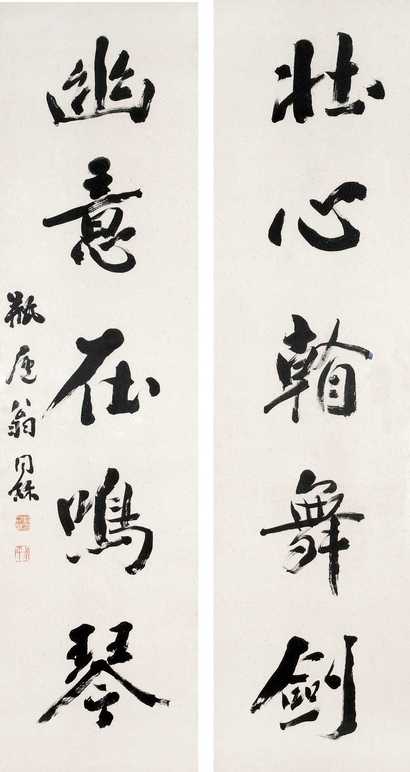 壯心輸舞劍
幽意在鳴琴
瓶廬翁同龢